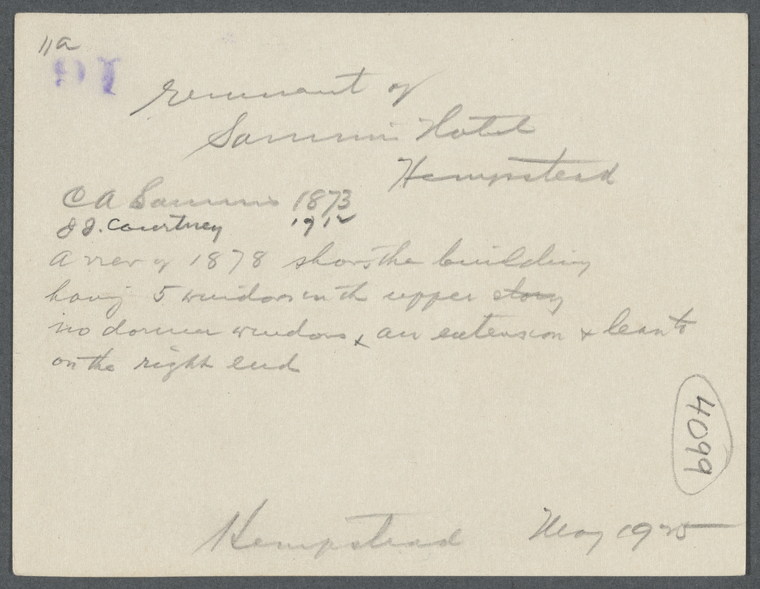 11a
91
Remnant of
Sammis Hotel
Hempstead
C A Sammis 1873
J J. Courtney 1912
A view of 1878 shows the building
having 5 windows in the upper story
no dormer windows & an extension & leanto
on the right end
4099
Hempstead May 1925